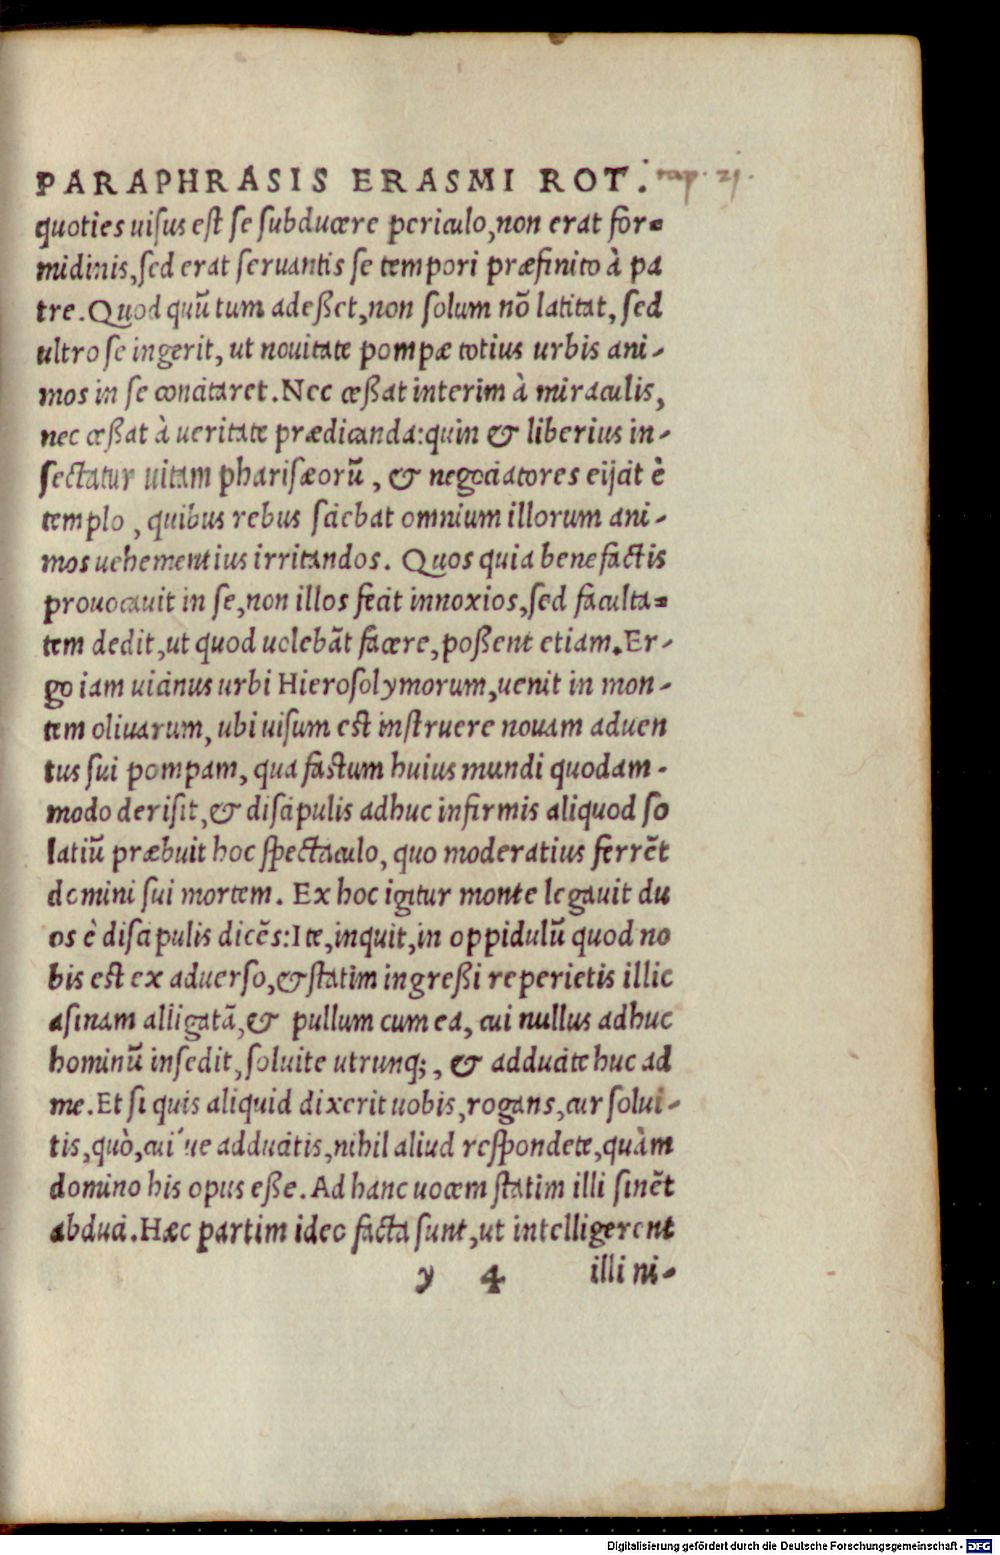 PARAPHRASIS ERASMI ROT. cap. 21.
quoties uisus est se subducere periculo, non erat for-
midinis, sed erat seruantis se tempori præfinito à pa
tre. Quod quū tum adeßet, non solum nō latitat, sed
ultro se ingerit, ut nouitate pompæ totius urbis ani-
mos in se concitaret. Nec ceßat interim à miraculis,
nec ceßat à ueritate prædicanda: quin & liberius in-
sectatur uitam pharisæorū, & negociatores eijcit è
templo, quibus rebus sciebat omnium illorum ani-
mos uehementius irritandos. Quos quia benefactis
prouocauit in se, non illos fecit innoxios, sed faculta-
tem dedit, ut quod uolebāt facere, poßent etiam. Er-
go iam uicinus urbi Hierosolymorum, uenit in mon-
tem oliuarum, ubi uisum est instruere nouam aduen
tus sui pompam, qua fastum huius mundi quodam-
modo derisit, & discipulis adhuc infirmis aliquod so
latiū præbuit hoc spectaculo, quo moderatius ferrēt
domini sui mortem. Ex hoc igitur monte legauit du
os è discipulis dicēs: Ite, inquit, in oppidulū quod no
bis est ex aduerso, & statim ingreßi reperietis illic
asinam alligatā, & pullum cum ea, cui nullus adhuc
hominū insedit, soluite utrunq;, & adducite huc ad
me. Et si quis aliquid dixerit uobis, rogans, cur solui-
tis, quò, cui ue adducitis, nihil aliud respondete, quàm
domino his opus eße. Ad hanc uocem statim illi sinēt
abduci. Hæc partim ideo facta sunt, ut intelligerent
y 4 illi ni-
Digitalisierung gefördert durch die Deutsche Forschungsgemeinschaft - DFG